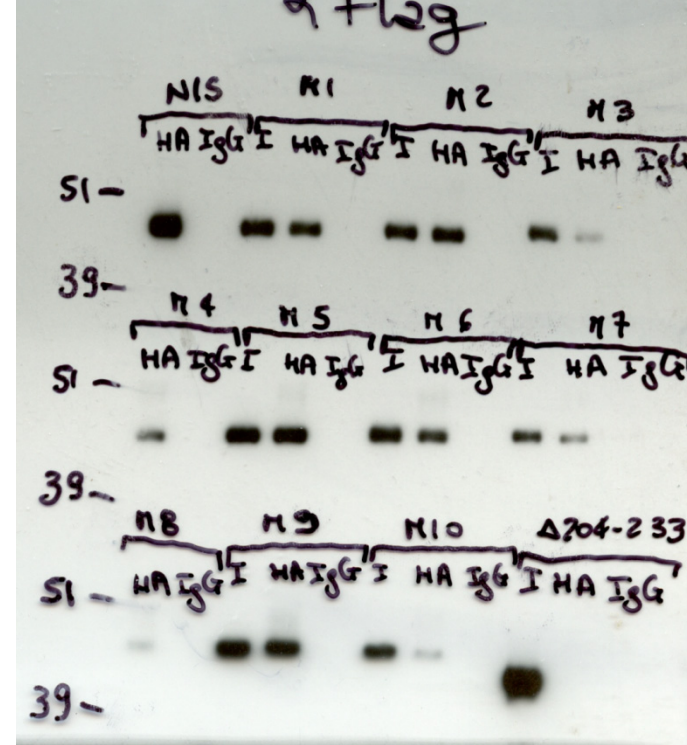 α Flag
N1S M1 M2 M3
HA IgG I HA IgG I HA IgG I HA IgG
51
39
M4 M5 M6 M7
HA IgG I HA IgG I HA IgG I HA IgG
51
39
M8 M9 M10 Δ204-233
HA IgG I HA IgG I HA IgG I HA IgG
51
39